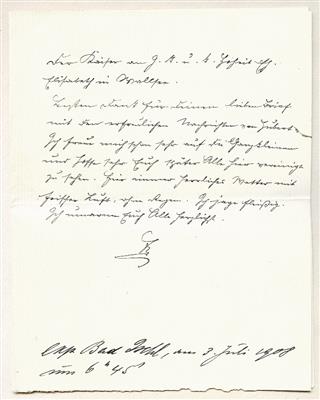 Der Kaiser an I. K. u. k. Hoheit Eh.
Elisabeth in Wallsee.
Besten Dank für Deinen lieben Brief
mit den erfreulichen Nachrichten von Hubert
Ich freue mich schon sehr auf die Ganzkleinen
und hoffe sehr Euch später Alle hier vereinigt
zu sehen. Hier immer herrliches Wetter mit
frischer Luft, ohne Regen. Ich jage fleißig.
Ich umarme Euch Alle herzlichst.
exp. Bad Ischl, am 3. Juli 1908
um 6h 45'